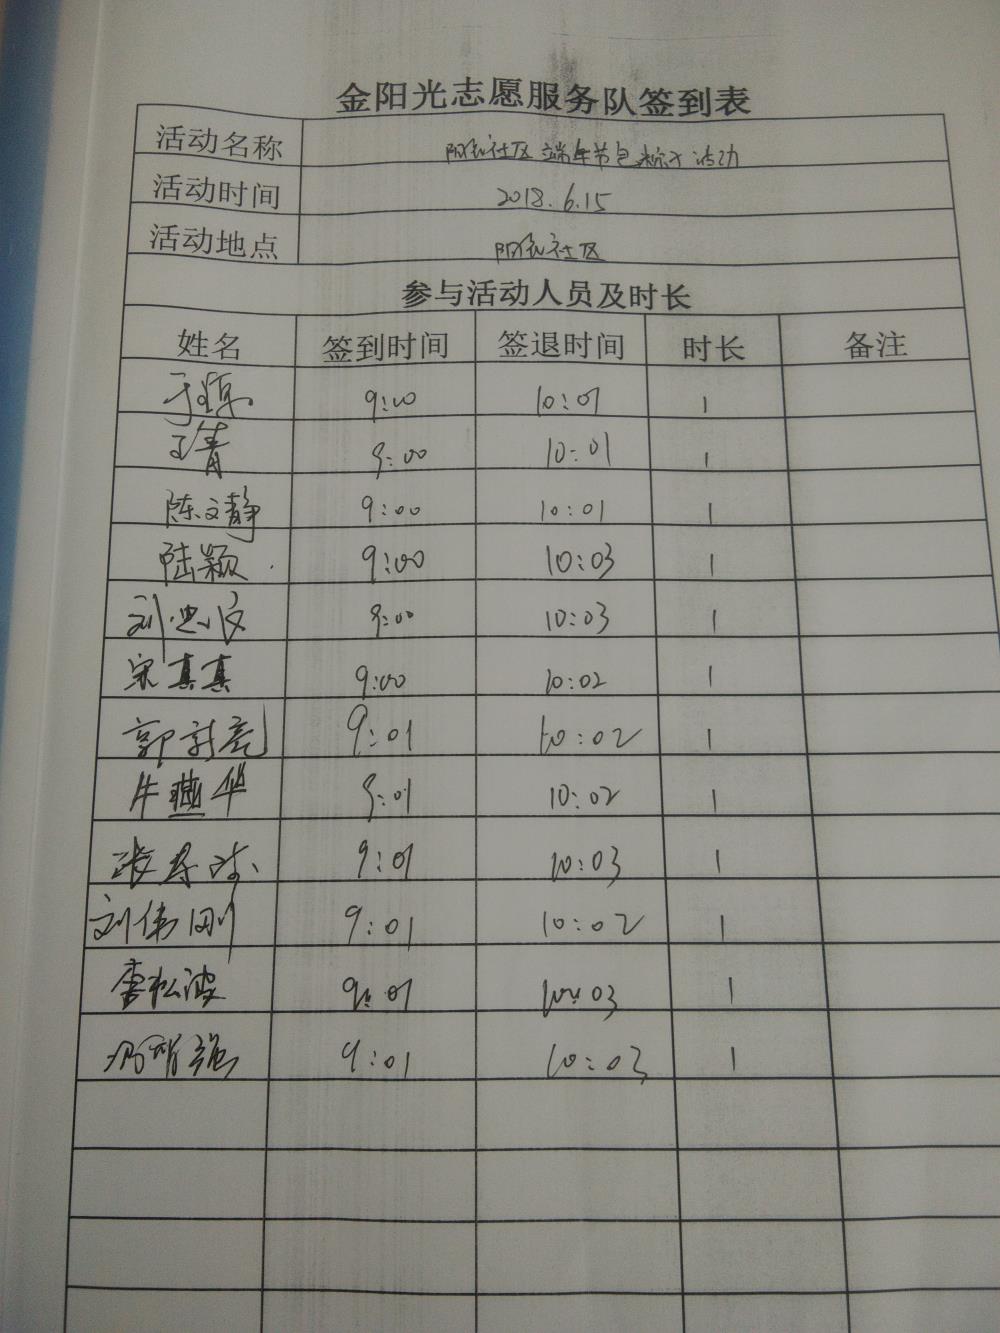 金阳光志愿服务队签到表
活动名称 社区端午节包粽子活动
活动时间 2018.6.15
活动地点 社区
参与活动人员及时长
姓名 签到时间 签退时间 时长 备注
9:00 10:01 1
王青 9:00 10:01 1
陈文静 9:00 10:01 1
陆颖 9:00 10:03 1
刘忠 9:00 10:03 1
宋真真 9:00 10:02 1
郭新亮 9:01 10:02 1
牛燕华 9:01 10:02 1
9:01 10:03 1
刘伟刚 9:01 10:02 1
李松波 9:01 10:03 1
冯明强 9:01 10:03 1